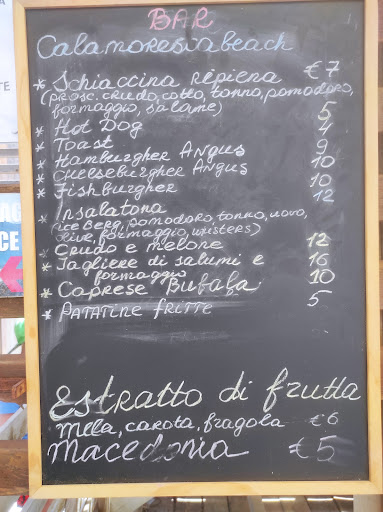 BAR
Calamorescabeach
* Schiaccina ripiena €7
(prosc. crudo, cotto, tonno, pomodoro,
formaggio, salame)
* Hot Dog 5
* Toast 4
* Hamburgher Angus 9
* Cheeseburgher Angus 10
* Fishburgher 10
* Insalatona 12
(ice Berg, pomodoro, tonno, uovo,
olive, formaggio, wüsters)
* Crudo e melone 12
* Tagliere di salumi e 16
formaggio
* Caprese Bufala 10
* Patatine fritte 5
Estratto di frutta
Mela, carota, fragola €6
Macedonia €5